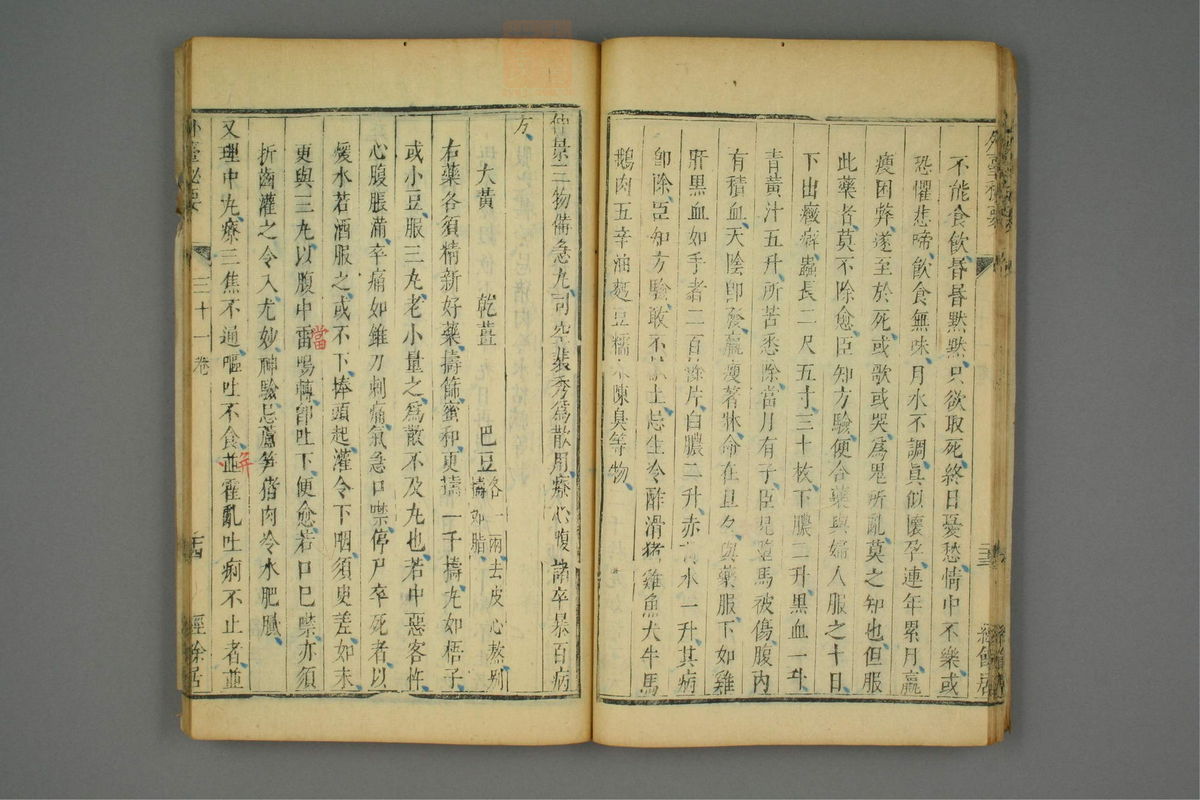 外臺秘要
二十三
經餘居
不能食飲昏昏默默只欲取死終日憂愁情中不樂或
恐懼悲啼飲食無味月水不調真似懷孕連年累月羸
瘦困弊遂至於死或歌或哭為鬼所亂莫之知也但服
此藥者莫不除愈臣知方驗便合藥與婦人服之十日
下出癥癖蟲長二尺五寸三十枚下膿二升黑血一斗
青黃汁五升所苦悉除當月有子臣兄墮馬被傷腹內
有積血天陰即發羸瘦著牀命在旦夕與藥服下如雞
肝黑血如手者二百餘片白膿二升赤水一升其病
即除臣知方驗敢不上忌生冷酢滑猪雞魚犬牛馬
鵝肉五辛油麪豆糯米陳臭等物
仲景三物備急丸司空裴秀為散用療心腹諸卒暴百病
方
大黃 乾薑 巴豆各一兩去皮心熬別擣如脂
右藥各須精新好藥擣篩蜜和更擣一千擣丸如梧子
或小豆服三丸老小量之為散不及丸也若中惡客忤
心腹脹滿卒痛如錐刀刺痛氣急口噤停尸卒死者以
煖水若酒服之或不下捧頭起灌令下咽須臾差如未
當
更與三丸以腹中雷鳴轉即吐下便愈若口已噤亦須
折齒灌之令入尤妙神驗忌蘆笋猪肉冷水肥膩
又理中丸療三焦不通嘔吐不食並霍亂吐痢不止者並
并
外臺秘要
三十一卷
二十四
經餘居